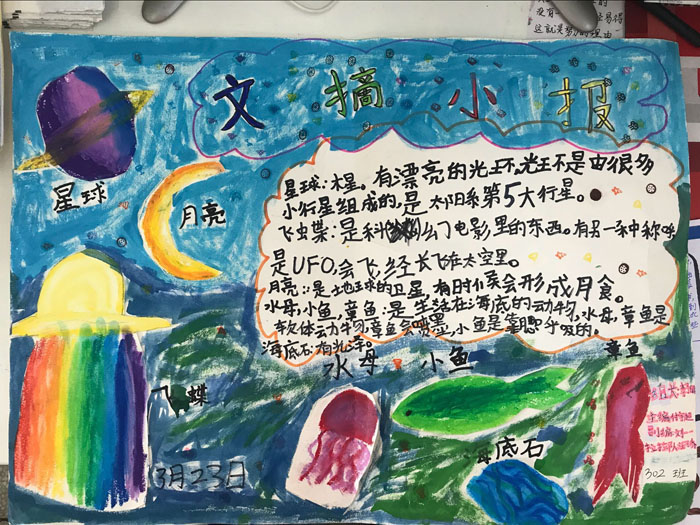 文摘小报
星球
月亮
星球:木星。有漂亮的光环,光环是由很多
小行星组成的,是太阳系第5大行星。
是科幻电影里的东西。有另一种称呼
是UFO,会飞,经长飞在太空里。
月亮:是地球的卫星,有时侯会形成月食。
水母,小鱼,章鱼:是生活在海底的动物,水母,章鱼是
软体动物,章鱼会喷墨,小鱼是靠腮呼吸的。
海底石:有光泽。
水母
小鱼
章鱼
飞蝶
3月23日
海底石
302班